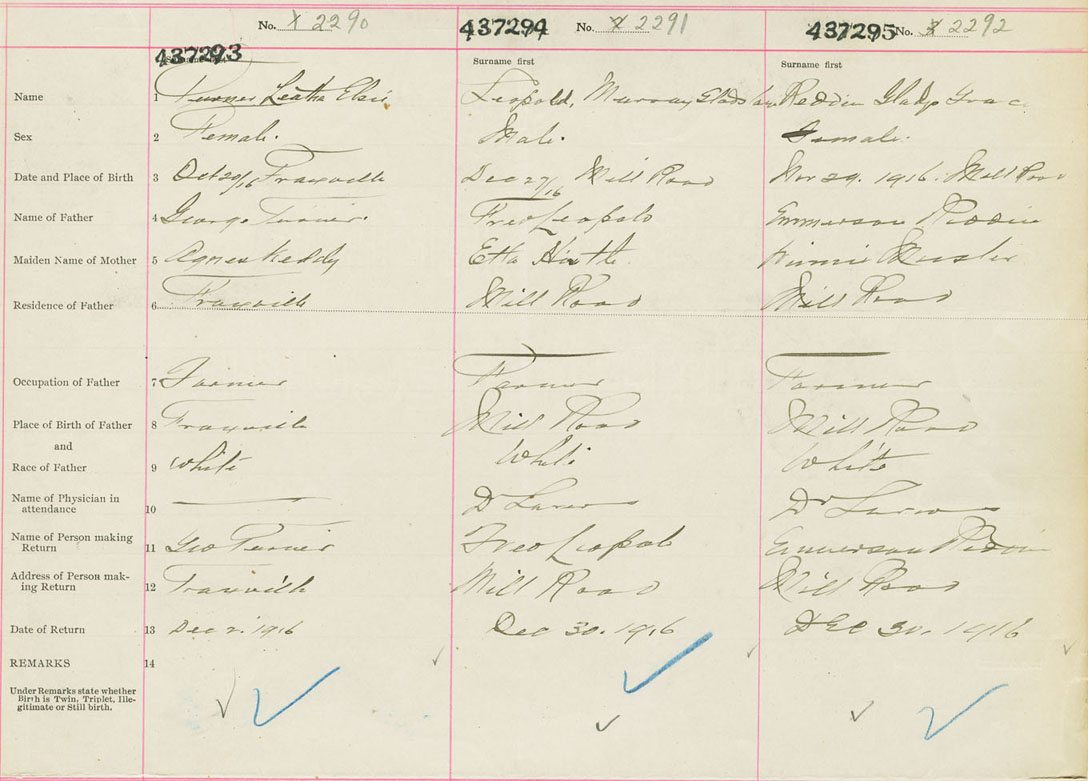 No. 2290 437294 No. 2291 437295 No. 2292
437293 Surname first Surname first
Name 1 Turner Leatha Elsie Leopold, Murray Reddin Gladys Grace
Sex 2 Female. Male. Female.
Date and Place of Birth 3 Oct 20/16 Fraxville Dec 27/16 Mill Road Nov 29. 1916. Mill Road
Name of Father 4 George Turner. Fred Leopold Emmerson Reddin
Maiden Name of Mother 5 Agnes Keddy Etta Hirtle Winnie
Residence of Father 6 Fraxville Mill Road Mill Road
Occupation of Father 7 Farmer Farmer Farmer
Place of Birth of Father 8 Fraxville Mill Road Mill Road
and
Race of Father 9 White White White
Name of Physician in
attendance 10 — Dr Dr
Name of Person making
Return 11 Geo Turner Fred Leopold Emmerson Reddin
Address of Person mak-
ing Return 12 Fraxville Mill Road Mill Road
Date of Return 13 Dec 2. 1916 Dec 30. 1916 DEC 30. 1916
REMARKS 14
Under Remarks state whether
Birth is Twin, Triplet, Ille-
gitimate or Still birth.